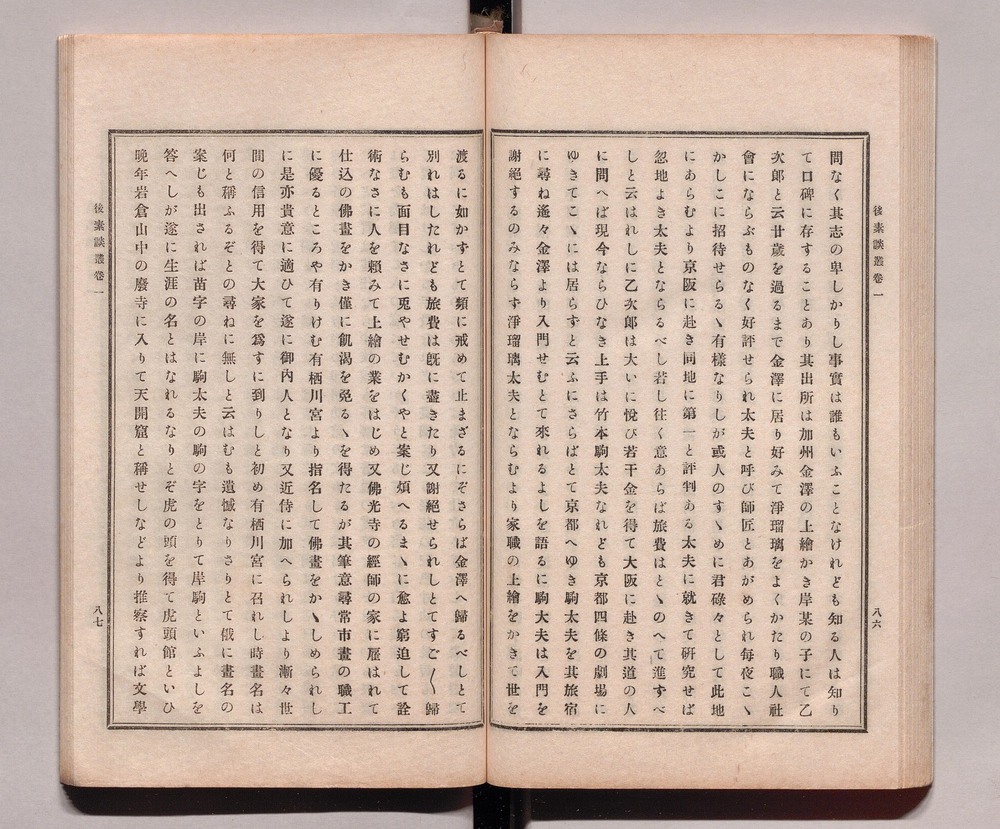 後素談叢卷一
八六
問なく其志の卑しかりし事實は誰もいふことなけれども知る人は知り
て口碑に存することあり其出所は加州金澤の上繪かき岸某の子にて乙
次郎と云廿歲を過るまで金澤に居り好みて淨瑠璃をよくかたり職人社
會にならぶものなく好評せられ太夫と呼び師匠とあがめられ每夜こゝ
かしこに招待せらるゝ有樣なりしが或人のすゝめに君碌々として此地
にあらむより京阪に赴き同地に第一と評判ある太夫に就きて研究せば
忽地よき太夫とならるべし若し往く意あらば旅費はとゝのへて進すべ
しと云はれしに乙次郎は大いに悅び若干金を得て大阪に赴き其道の人
に問へば現今ならひなき上手は竹本駒太夫なれども京都四條の劇場に
ゆきてこゝには居らずと云ふにさらばとて京都へゆき駒太夫を其旅宿
に尋ね遙々金澤より入門せむとて來れるよしを語るに駒大夫は入門を
謝絕するのみならず淨瑠璃太夫とならむより家職の上繪をかきて世を
渡るに如かずとて頻に戒めて止まざるにぞさらば金澤へ歸るべしとて
別れはしたれども旅費は旣に盡きたり又謝絕せられしとてすご〱歸
らむも面目なさに兎やせむかくやと案じ煩へるまゝに愈よ窮迫して詮
術なさに人を賴みて上繪の業をはじめ又佛光寺の經師の家に雇はれて
仕込の佛畫をかき僅に飢渴を免るゝを得たるが其筆意尋常市畫の職工
に優るところや有りけむ有栖川宮より指名して佛畫をかゝしめられし
に是亦貴意に適ひて遂に御內人となり又近侍に加へられしより漸々世
間の信用を得て大家を爲すに到りしと初め有栖川宮に召れし時畫名は
何と稱ふるぞとの尋ねに無しと云はむも遺憾なりさりとて俄に畫名の
案じも出されば苗字の岸に駒太夫の駒の字をとりて岸駒といふよしを
答へしが遂に生涯の名とはなれるなりとぞ虎の頭を得て虎頭館といひ
晚年岩倉山中の廢寺に入りて天開窟と稱せしなどより推察すれば文學
後素談叢卷一
八七